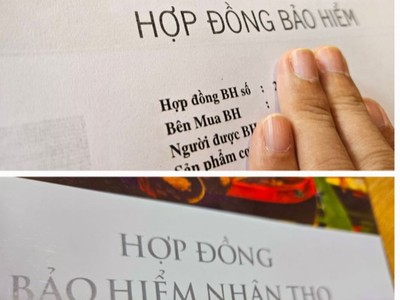 HỢP ĐỒNG BẢO HIỂM
Hợp đồng BH số :
Bên Mua BH :
Người được BH
Sản phẩm cơ
HỢP ĐỒNG
BẢO HIỂM NHÂN THỌ